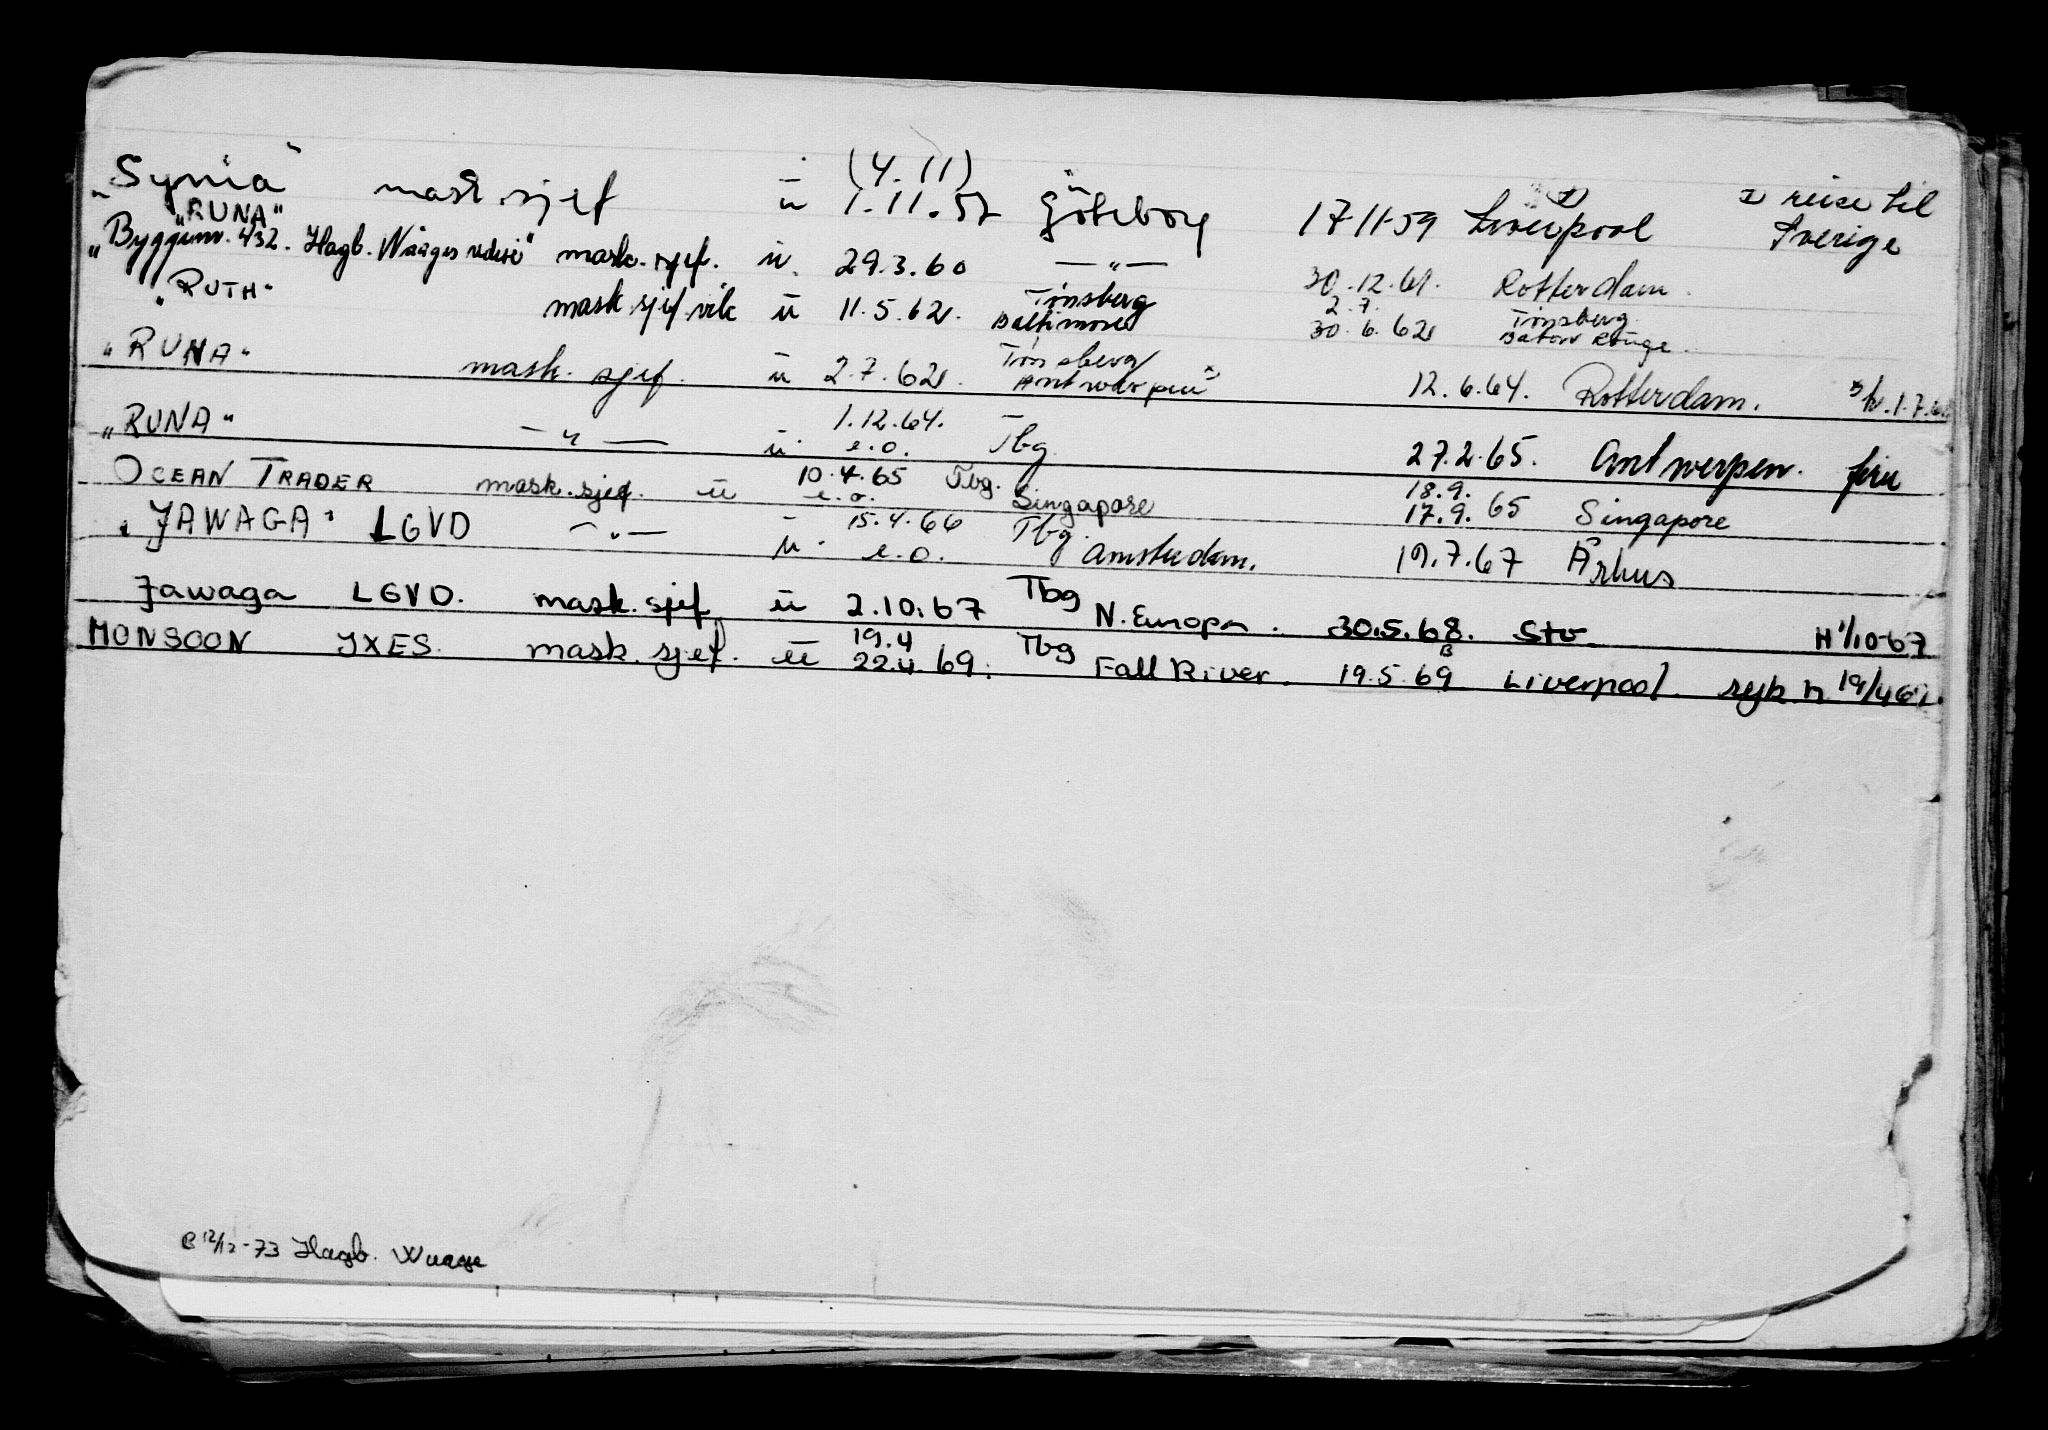 (4.11)
"Synia" mask.sjef u 1.11.57 Göteborg 17-11-59 Liverpool x) x) reise til
Sverige
"RUNA"
"Byggenr. 432. Hagb. Waages rederi" mask.sjef. u. 29.3.60 — " — 30.12.61. Rotterdam.
"RUTH" mask.sjef.vik u 11.5.62. Tønsberg 2.7. Tønsberg
Baltimore 30.6.62 Baton Rouge.
"RUNA" mask. sjef. u 2.7.62. Tønsberg
Antwerpen x) 12.6.64. Rotterdam.
"RUNA" — " — u. 1.12.64. Tbg.
e.o. 27.2.65. Antwerpen.
OCEAN TRADER mask.sjef. u 10.4.65 Tbg. 18.9.
e.o. Singapore 17.9.65 Singapore
"JAWAGA" LGVD — " — u. 15.4.66 Tbg.
e.o. Amsterdam. 19.7.67 Århus
Jawaga LGVD. mask.sjef u 2.10.67 Tbg N.Europa. 30.5.68. Sto H 1/10-67
MONSOON JXES. mask.sjef. u 19.4 Tbg B
22.4.69. Fall River. 19.5.69 Liverpool. syk. H 19/4 69.
B 12/12-73 Hagb. Waage